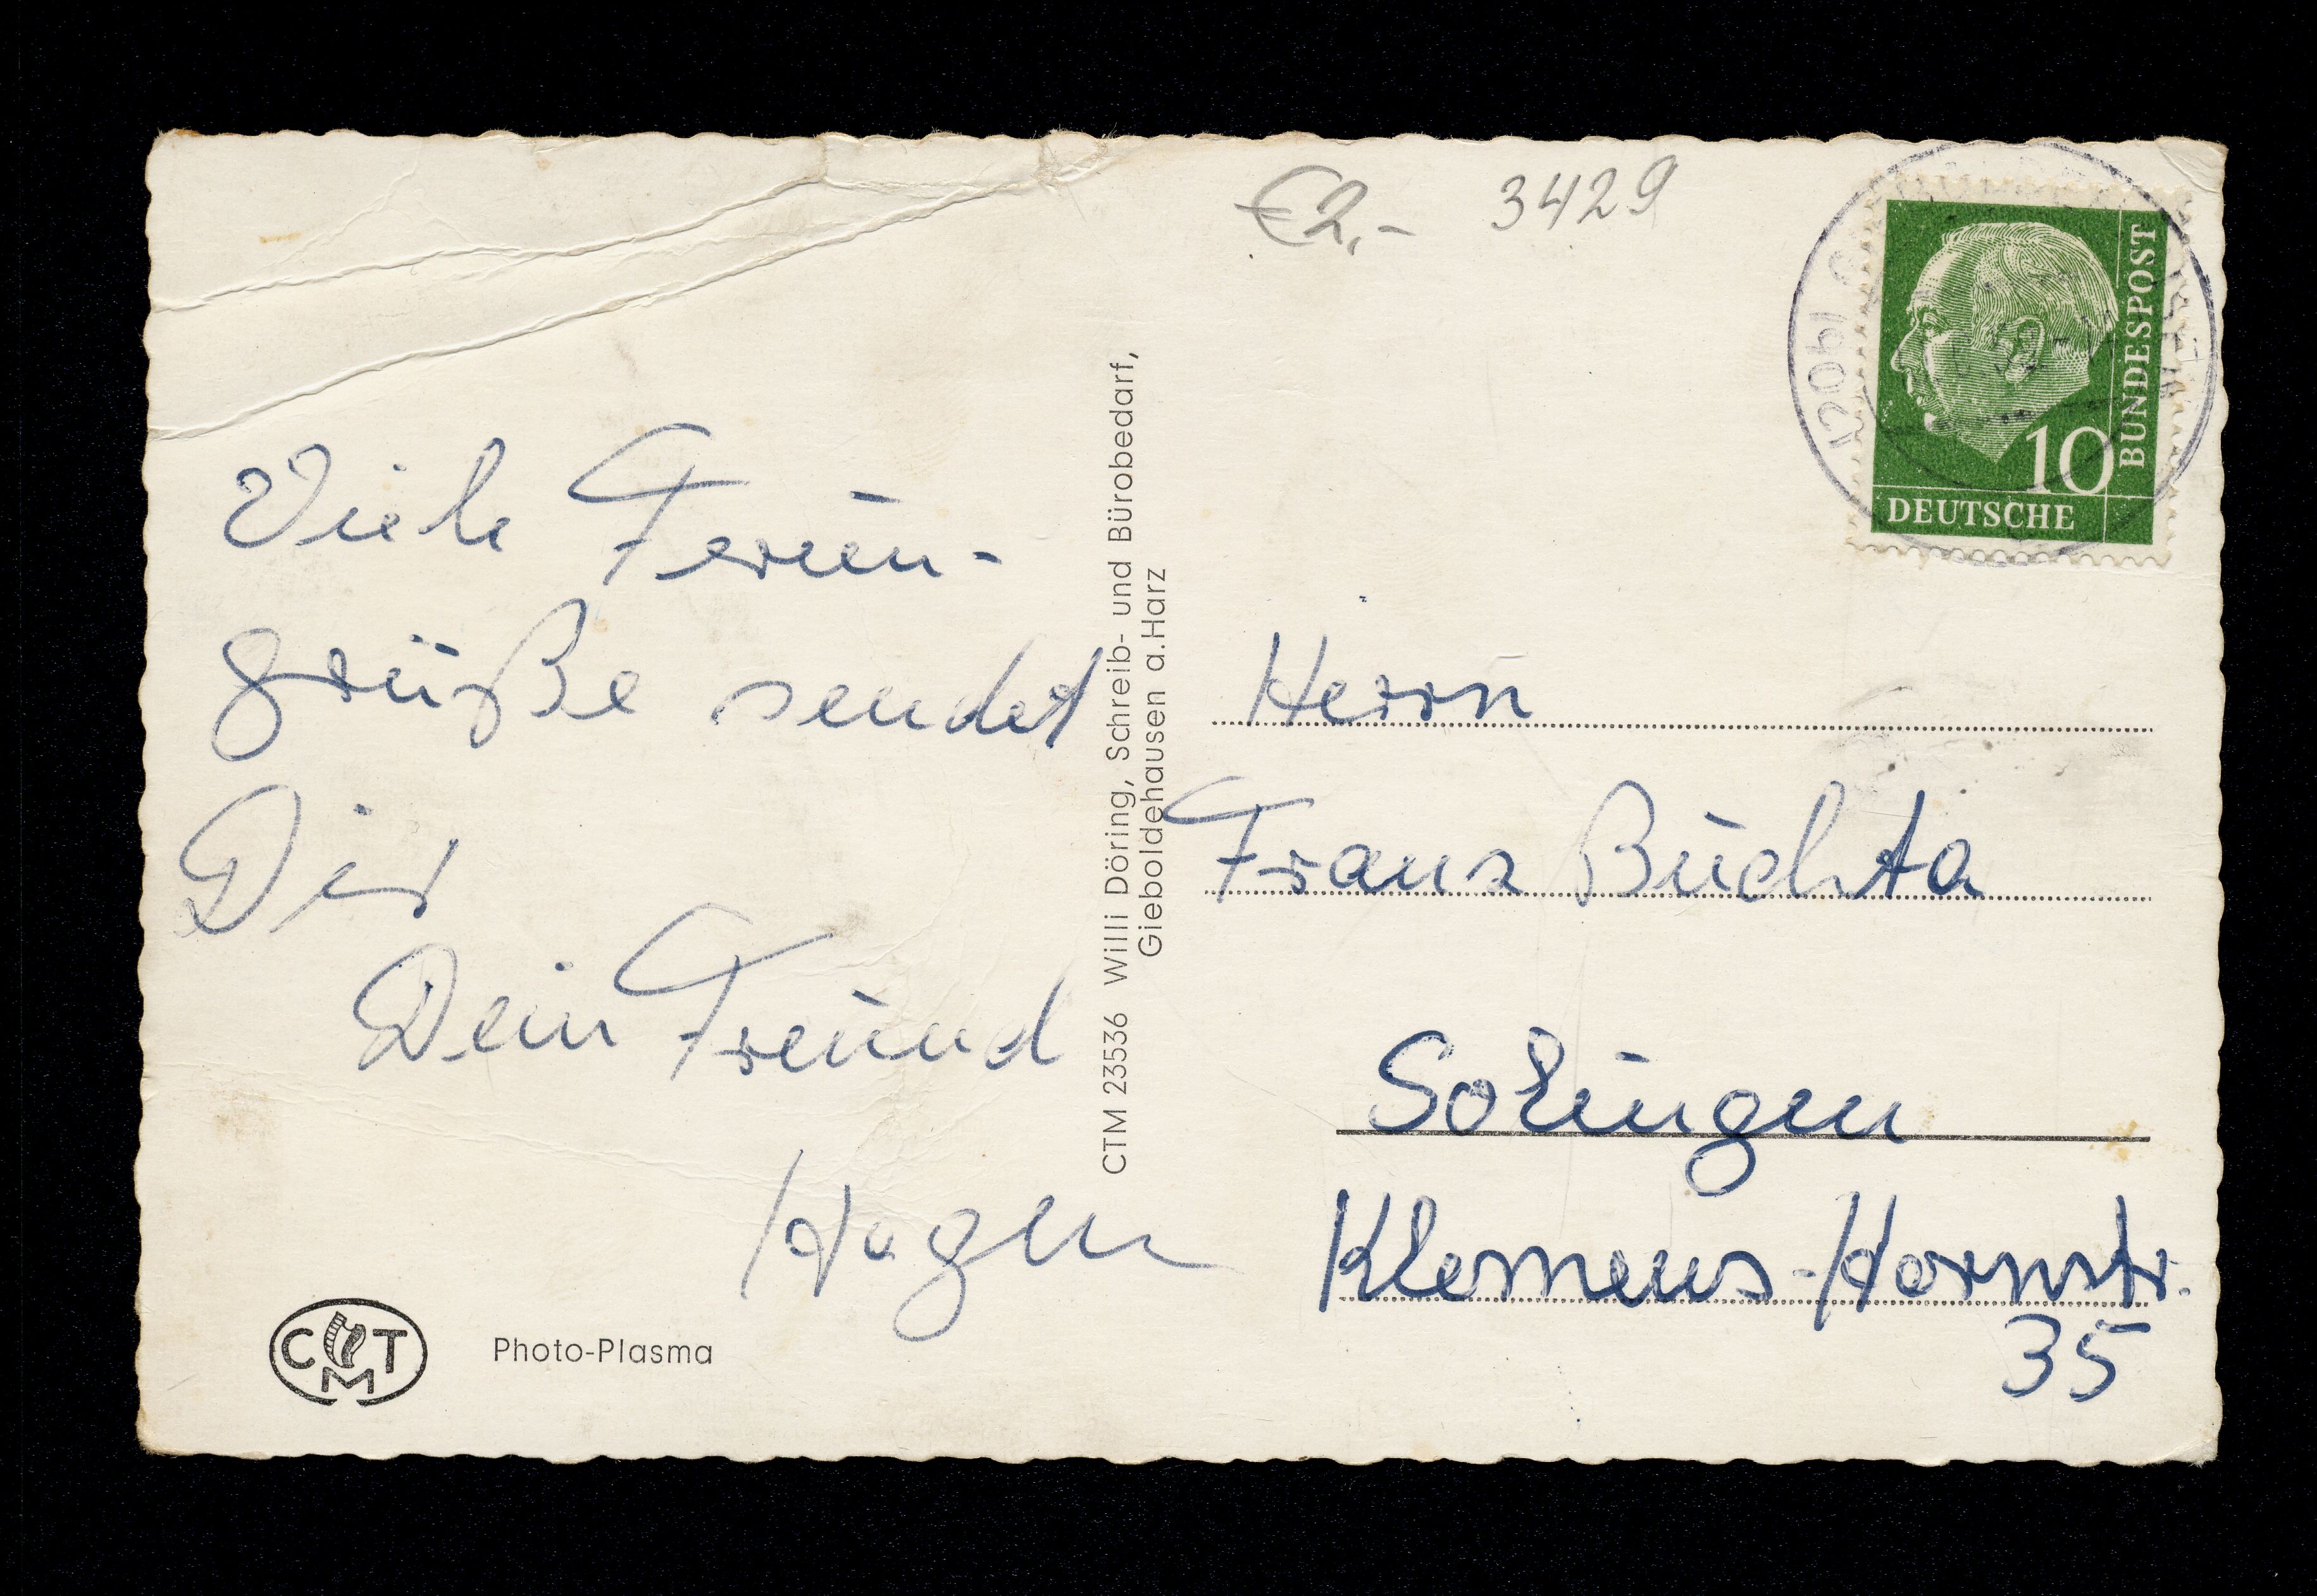 €2,- 3429
Viele Ferien-
grüße sendet
Dir
Dein Freund
Hagen
CTM 23536 Willi Döring, Schreib- und Bürobedarf,
Gieboldehausen a.Harz
CMT
Photo-Plasma
(20b)
10
DEUTSCHE
BUNDESPOST
Herrn
Franz Buchta
Solingen
Klemens-Hornstr.
35